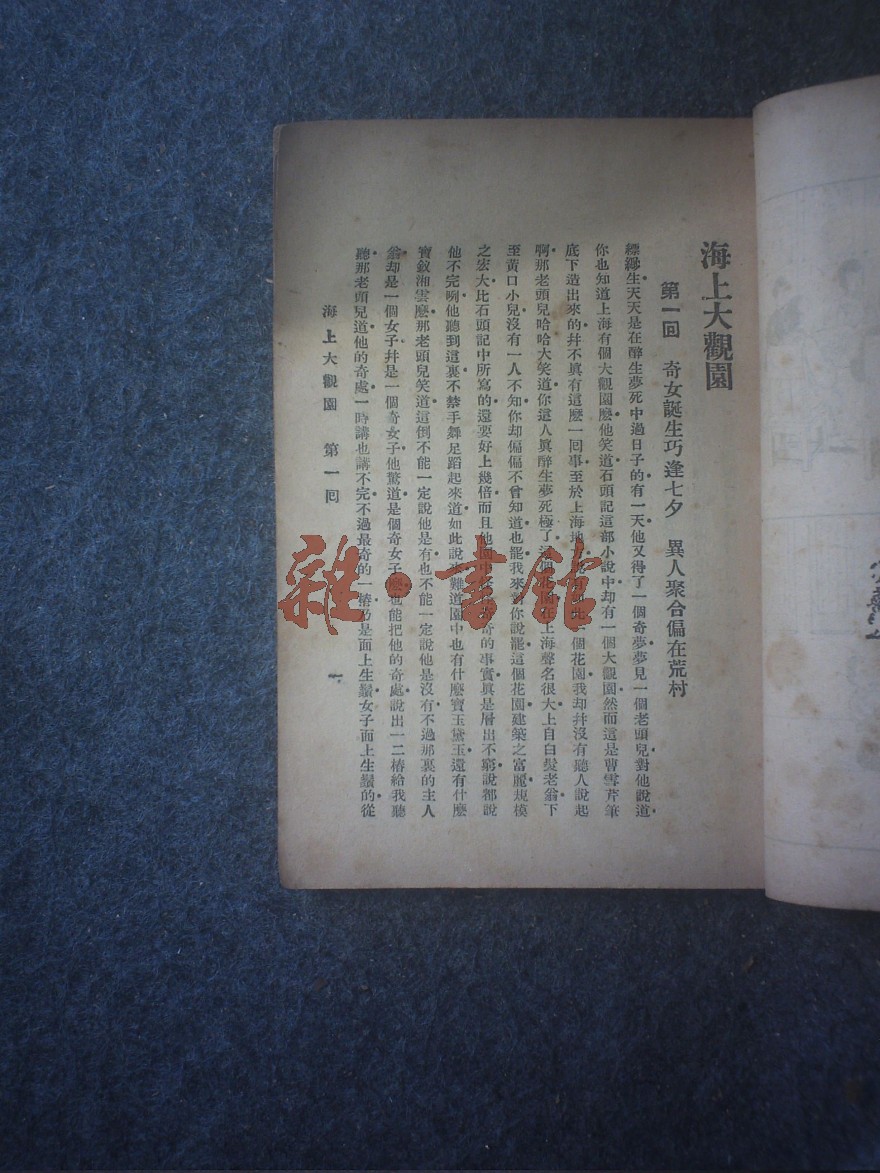 海上大觀園
第一回　奇女誕生巧逢七夕　異人聚合偏在荒村
縹緲生天天是在醉生夢死中過日子的有一天他又得了一個奇夢夢見一個老頭兒對他說道
你也知道上海有個大觀園麽他笑道石頭記這部小說中却有一個大觀園然而這是曹雪芹筆
底下造出來的幷不眞有這麽一回事至於上海地 一個花園我却幷沒有聽人說起
啊那老頭兒哈哈大笑道你這人眞醉生夢死極了這個花園在上海聲名很大上自白髮老翁下
至黃口小兒沒有一人不知你却偏偏不曾知道也罷我來對你說罷這個花園建築之富麗規模
之宏大比石頭記中所寫的還要好上幾倍而且他園中 奇的事實眞是層出不窮說都說
他不完咧他聽到這裏不禁手舞足蹈起來道如此說來難道園中也有什麽寶玉黛玉還有什麽
寶釵湘雲麽那老頭兒笑道這倒不能一定說他是有也不能一定說他是沒有不過那裏的主人
翁却是一個女子幷是一個奇女子他驚道是個奇女子麽也能把他的奇處說出一二樁給我聽
聽那老頭兒道他的奇處一時講也講不完不過最奇的一樁乃是面上生鬚女子面上生鬚的從
海上大觀園　第一回
一
雜·書館